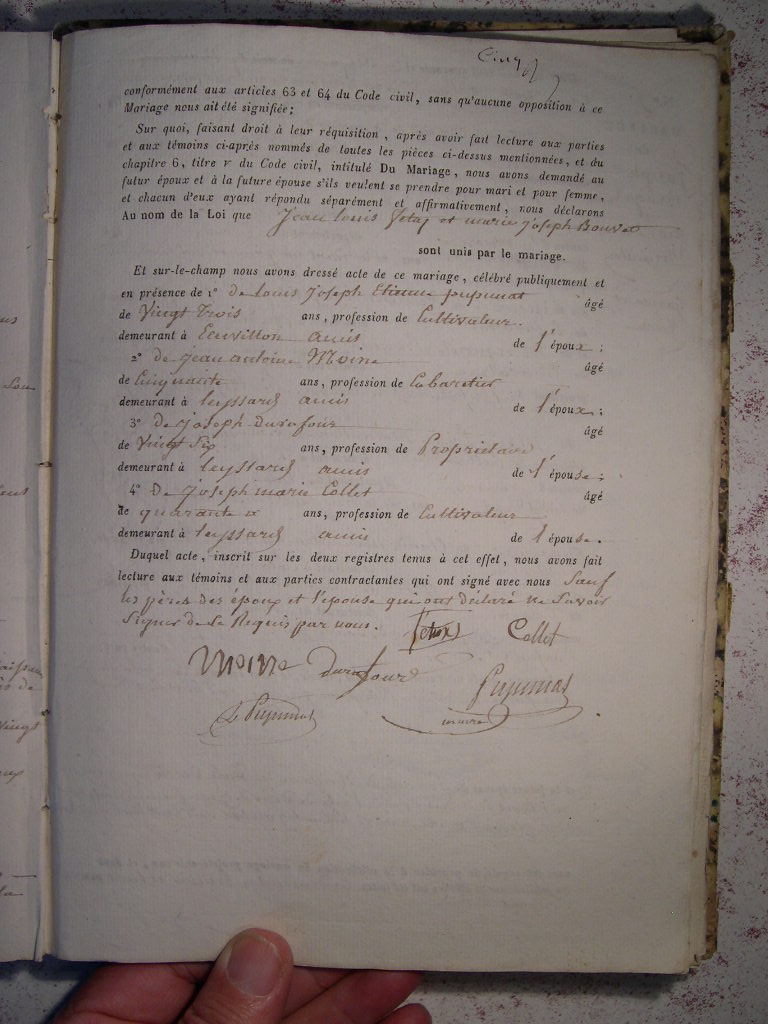 conformément aux articles 63 et 64 du Code civil, sans qu'aucune opposition à ce
Mariage nous ait été signifiée;
Sur quoi, faisant droit à leur réquisition, après avoir fait lecture aux parties
et aux témoins ci-après nommés de toutes les pièces ci-dessus mentionnées, et du
chapitre 6, titre v du Code civil, intitulé Du Mariage, nous avons demandé au
futur époux et à la future épouse s'ils veulent se prendre pour mari et pour femme,
et chacun d'eux ayant répondu séparément et affirmativement, nous déclarons
Au nom de la Loi que Jean Louis et marie joseph Bouvet
sont unis par le mariage.
Et sur-le-champ nous avons dressé acte de ce mariage, célébré publiquement et
en présence de 1° de Louis joseph Etienne pupunat âgé
de Vingt Trois ans, profession de Cultivateur.
demeurant à amis de l'époux;
2° de jean antoine Moine âgé
de Cinquante ans, profession de Cabaretier
demeurant à leyssard amis de l'époux;
3° de joseph Durafour âgé
de Vingt Six ans, profession de Propriétaire
demeurant à leyssard amis de l'épouse;
4° De joseph marie Collet âgé
de quarante ans, profession de Cultivateur
demeurant à leyssard amis de l'épouse.
Duquel acte, inscrit sur les deux registres tenus à cet effet, nous avons fait
lecture aux témoins et aux parties contractantes qui ont signé avec nous Sauf
les pères des époux et l'épouse qui ont déclaré ne Savoir
Signer de ce Requis par nous.
Collet
Moine Durafour Pupunat
L Pupunat maire